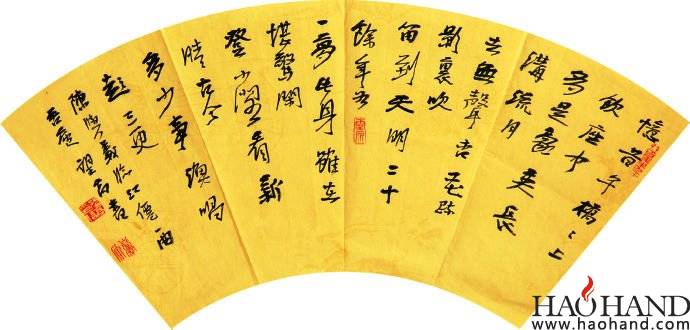 憶昔午橋〻上
飲座中
多是豪英長
溝流月
去無聲杏花疏
影裏吹
笛到天明二十
餘年如
一夢此身雖在
堪驚閑
登小閣看新
晴古今
多少事漁唱
起三更
陳與義臨江僊一曲
HAOHAND
www.haohand.com